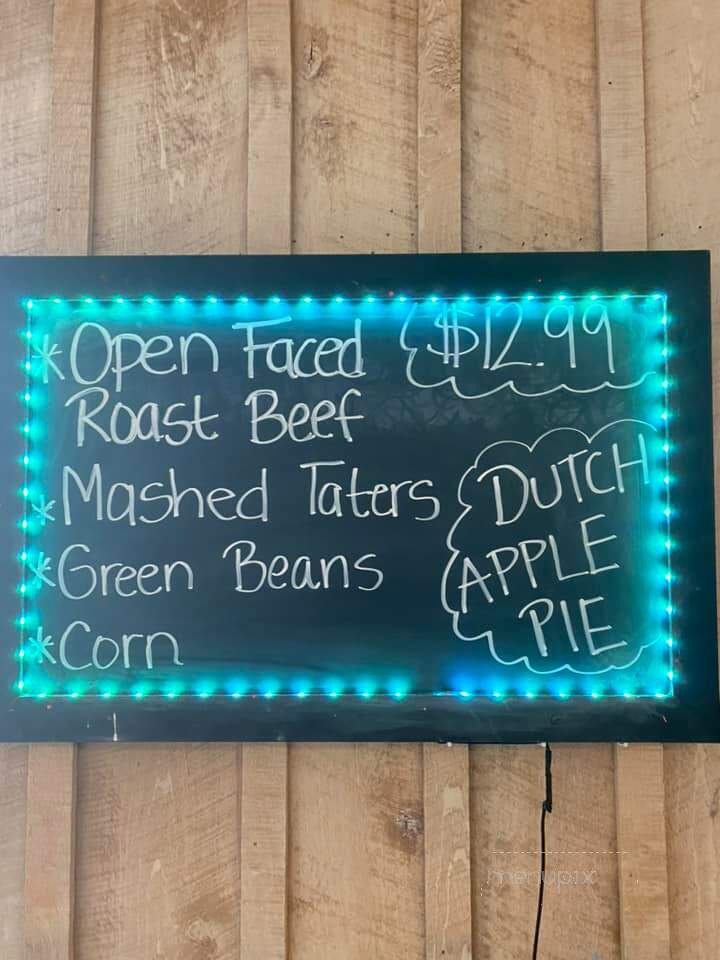 *Open Faced $12.99
Roast Beef
*Mashed Taters
*Green Beans
*Corn
DUTCH
APPLE
PIE
menupix